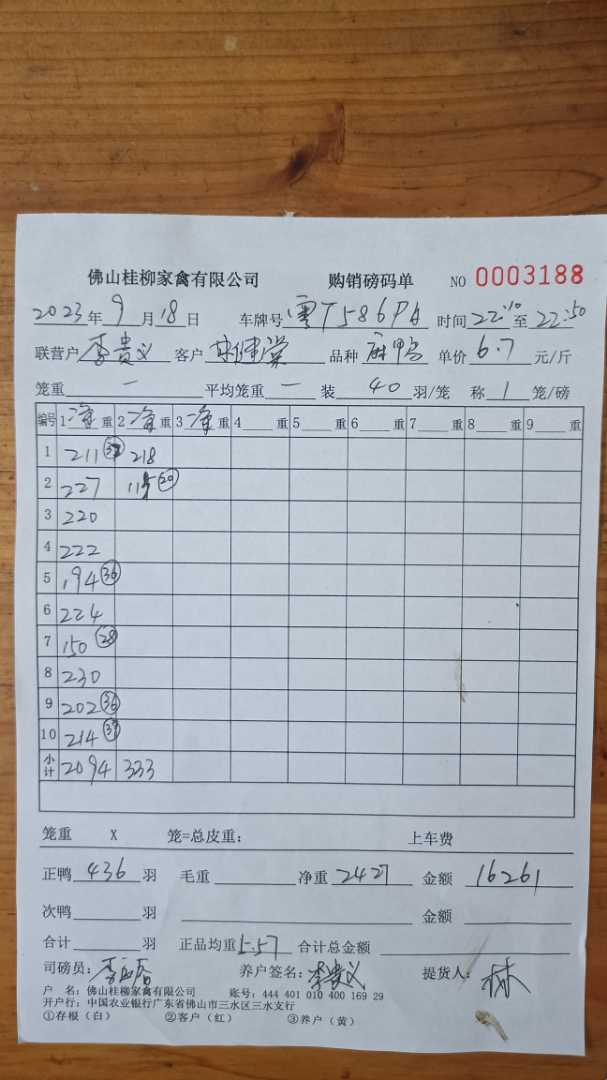 佛山桂柳家禽有限公司 购销磅码单 NO 0003188
2023年 9月 18日 车牌号 粤T586PA 时间 22:10 至 22:50
联营户 李贵义 客户 品种 麻鸭 单价 6.7 元/斤
笼重 — 平均笼重 — 装 40 羽/笼 称 1 笼/磅
编号 1 净 重 2 净 重 3 净 重 4 重 5 重 6 重 7 重 8 重 9 重
1 211 218
2 227 115 (20)
3 220
4 222
5 194 (36)
6 224
7 150 (28)
8 230
9 202 (36)
10 214 (39)
小计 2094 333
笼重 X 笼=总皮重: 上车费
正鸭 436 羽 毛重 净重 2427 金额 16261
次鸭 羽 金额
合计 羽 正品均重 5.57 合计总金额
司磅员: 养户签名: 李贵义 提货人: 林
户 名: 佛山桂柳家禽有限公司 账号: 444 401 010 400 169 29
开户行: 中国农业银行广东省佛山市三水区三水支行
①存根(白) ②客户(红) ③养户(黄)